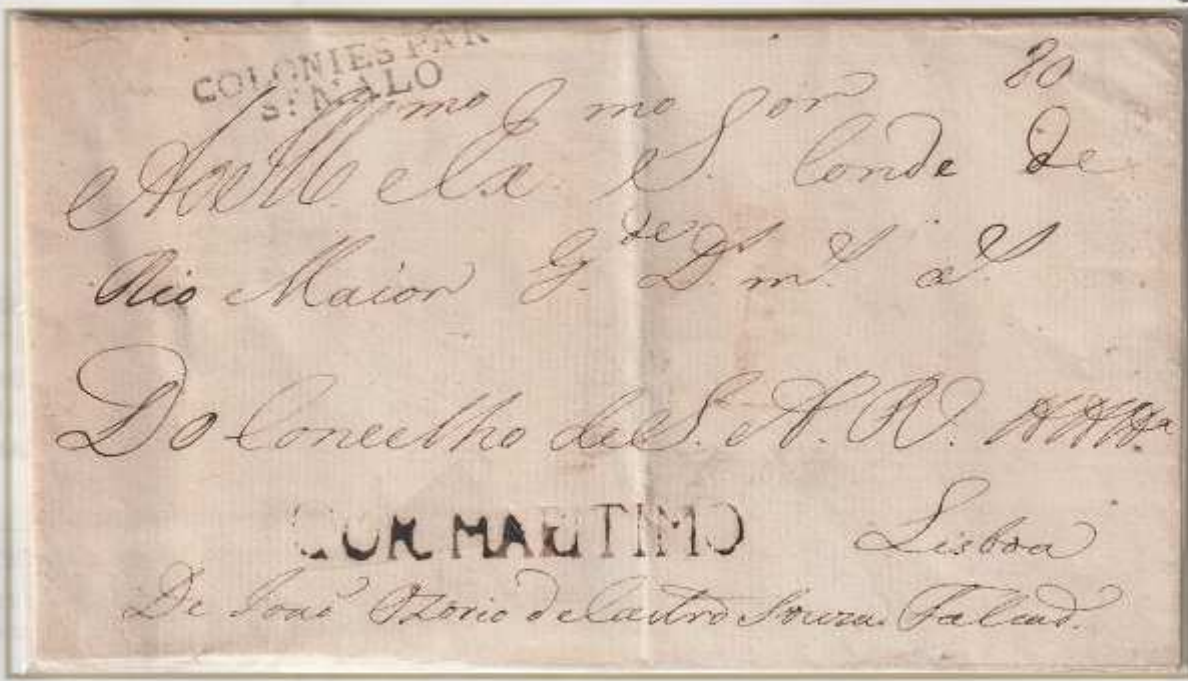 COLONIES PAR
St. MALO
20
mo mo or
S. Conde de
Rio Maior G.de D. m. a S.
Do Concelho de S. A. R.
COR. MARITIMO
Lisboa
De João Ozorio de Castro Souza Falcaõ.